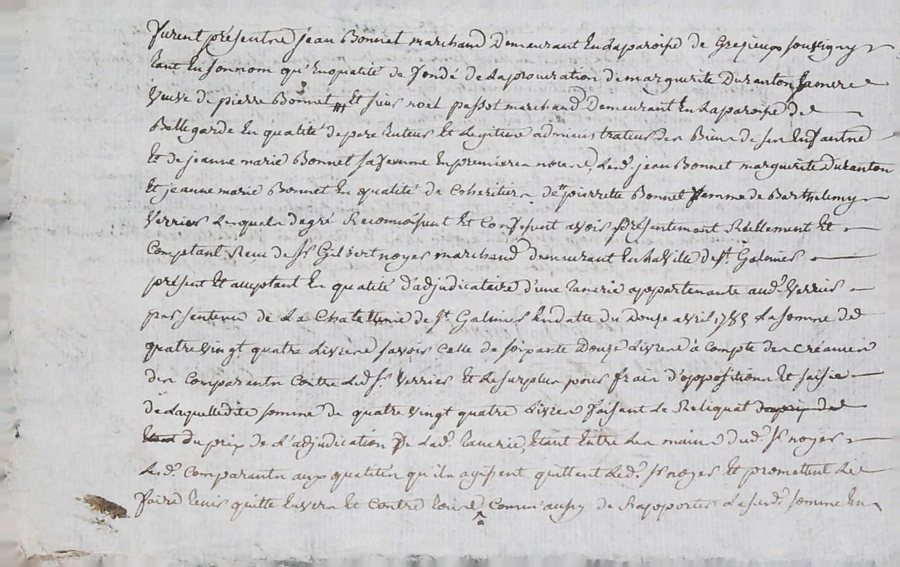 furent présentre jean Bonnet marchand Demeurant En Laparoisse de Grezieux souvigny
tant En son nom qu'Enqualité de fondé de Laprocuration de marguerite Duranton samere
veuve de pierre Bonnet Et sieur noel passot marchand demeurant En Laparoisse de
Bellegarde En qualité depere tuteur Et Legitime administrateur des Biens de ses Enfantre
Et de jeanne marie Bonnet safemme En premieres noces, Led. jean Bonnet marguerite Duranton
Et jeanne marie Bonnet En qualité de Coheritiers de pierrette Bonnet femme de Barthelemy
verrier Lesquels degré Reconnoissent Et Confessent avoir présentement Réellement Et
Comptant Receu de Sr. Gilbert noyer marchand demeurant En la ville de St. Galmier
présent Et acceptant En qualité d'adjudicataire d'une tanerie appartenante aud. verrier
par sentence de La Chatellenie de St Galmier En datte du Douze avril 1785 La somme de
quatre vingt quatre Livres savoir Celle de soixante Douze Livres à Compte des Créances
des Comparants Contre Led. Sr verrier Et Lesurplus pour frais d'opposition Et saisie
de Laquelledite somme de quatre vingt quatre Livres faisant Le Reliquat
du prix de L'adjudication de Lad. tanerie, Etant Entre Les mains dud. Sr noyer
Led. Comparants aux qualités qu'ils agissent quittent Led. Sr noyer Et promettent Le
faire tenir quitte Envers Et Contre tous Comm'aussy de Rapporter Lasusd. somme En